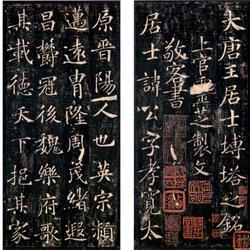 大唐王居士塼塔之銘
上官靈芝製文
敬客書
居士諱公字孝寬太
原晉陽人也英宗穎
邁遠冑隆周茂緒遐
昌鬱冠後魏樂府歌
其載德天下挹其家